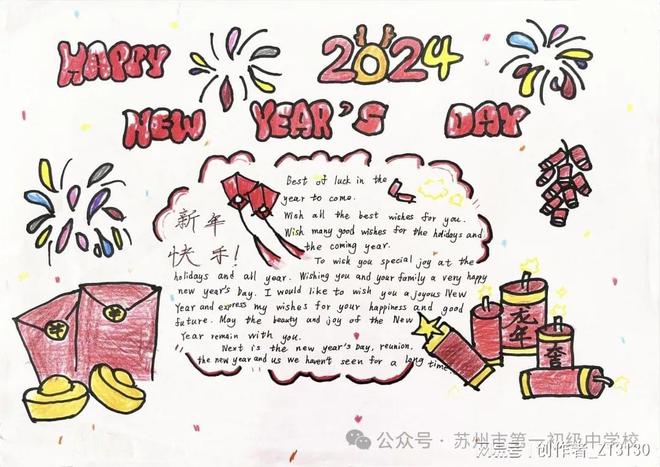 HAPPY 2024
NEW YEAR'S DAY
新年
快乐!
Best of luck in the
year to come.
Wish all the best wishes for you.
Wish many good wishes for the holidays and
the coming year.
To wish you special joy at the
holidays and all year. Wishing you and your family a very happy
new year's Day. I would like to wish you a joyous New
Year and express my wishes for your happiness and good
future. May the beauty and joy of the New
Year remain with you.
Next is the new year's Day, reunion,
the new year and us we haven't seen for a long time.
龙年
公众号·苏州市第一初级中学校
搜狐号·创作者_Z13130